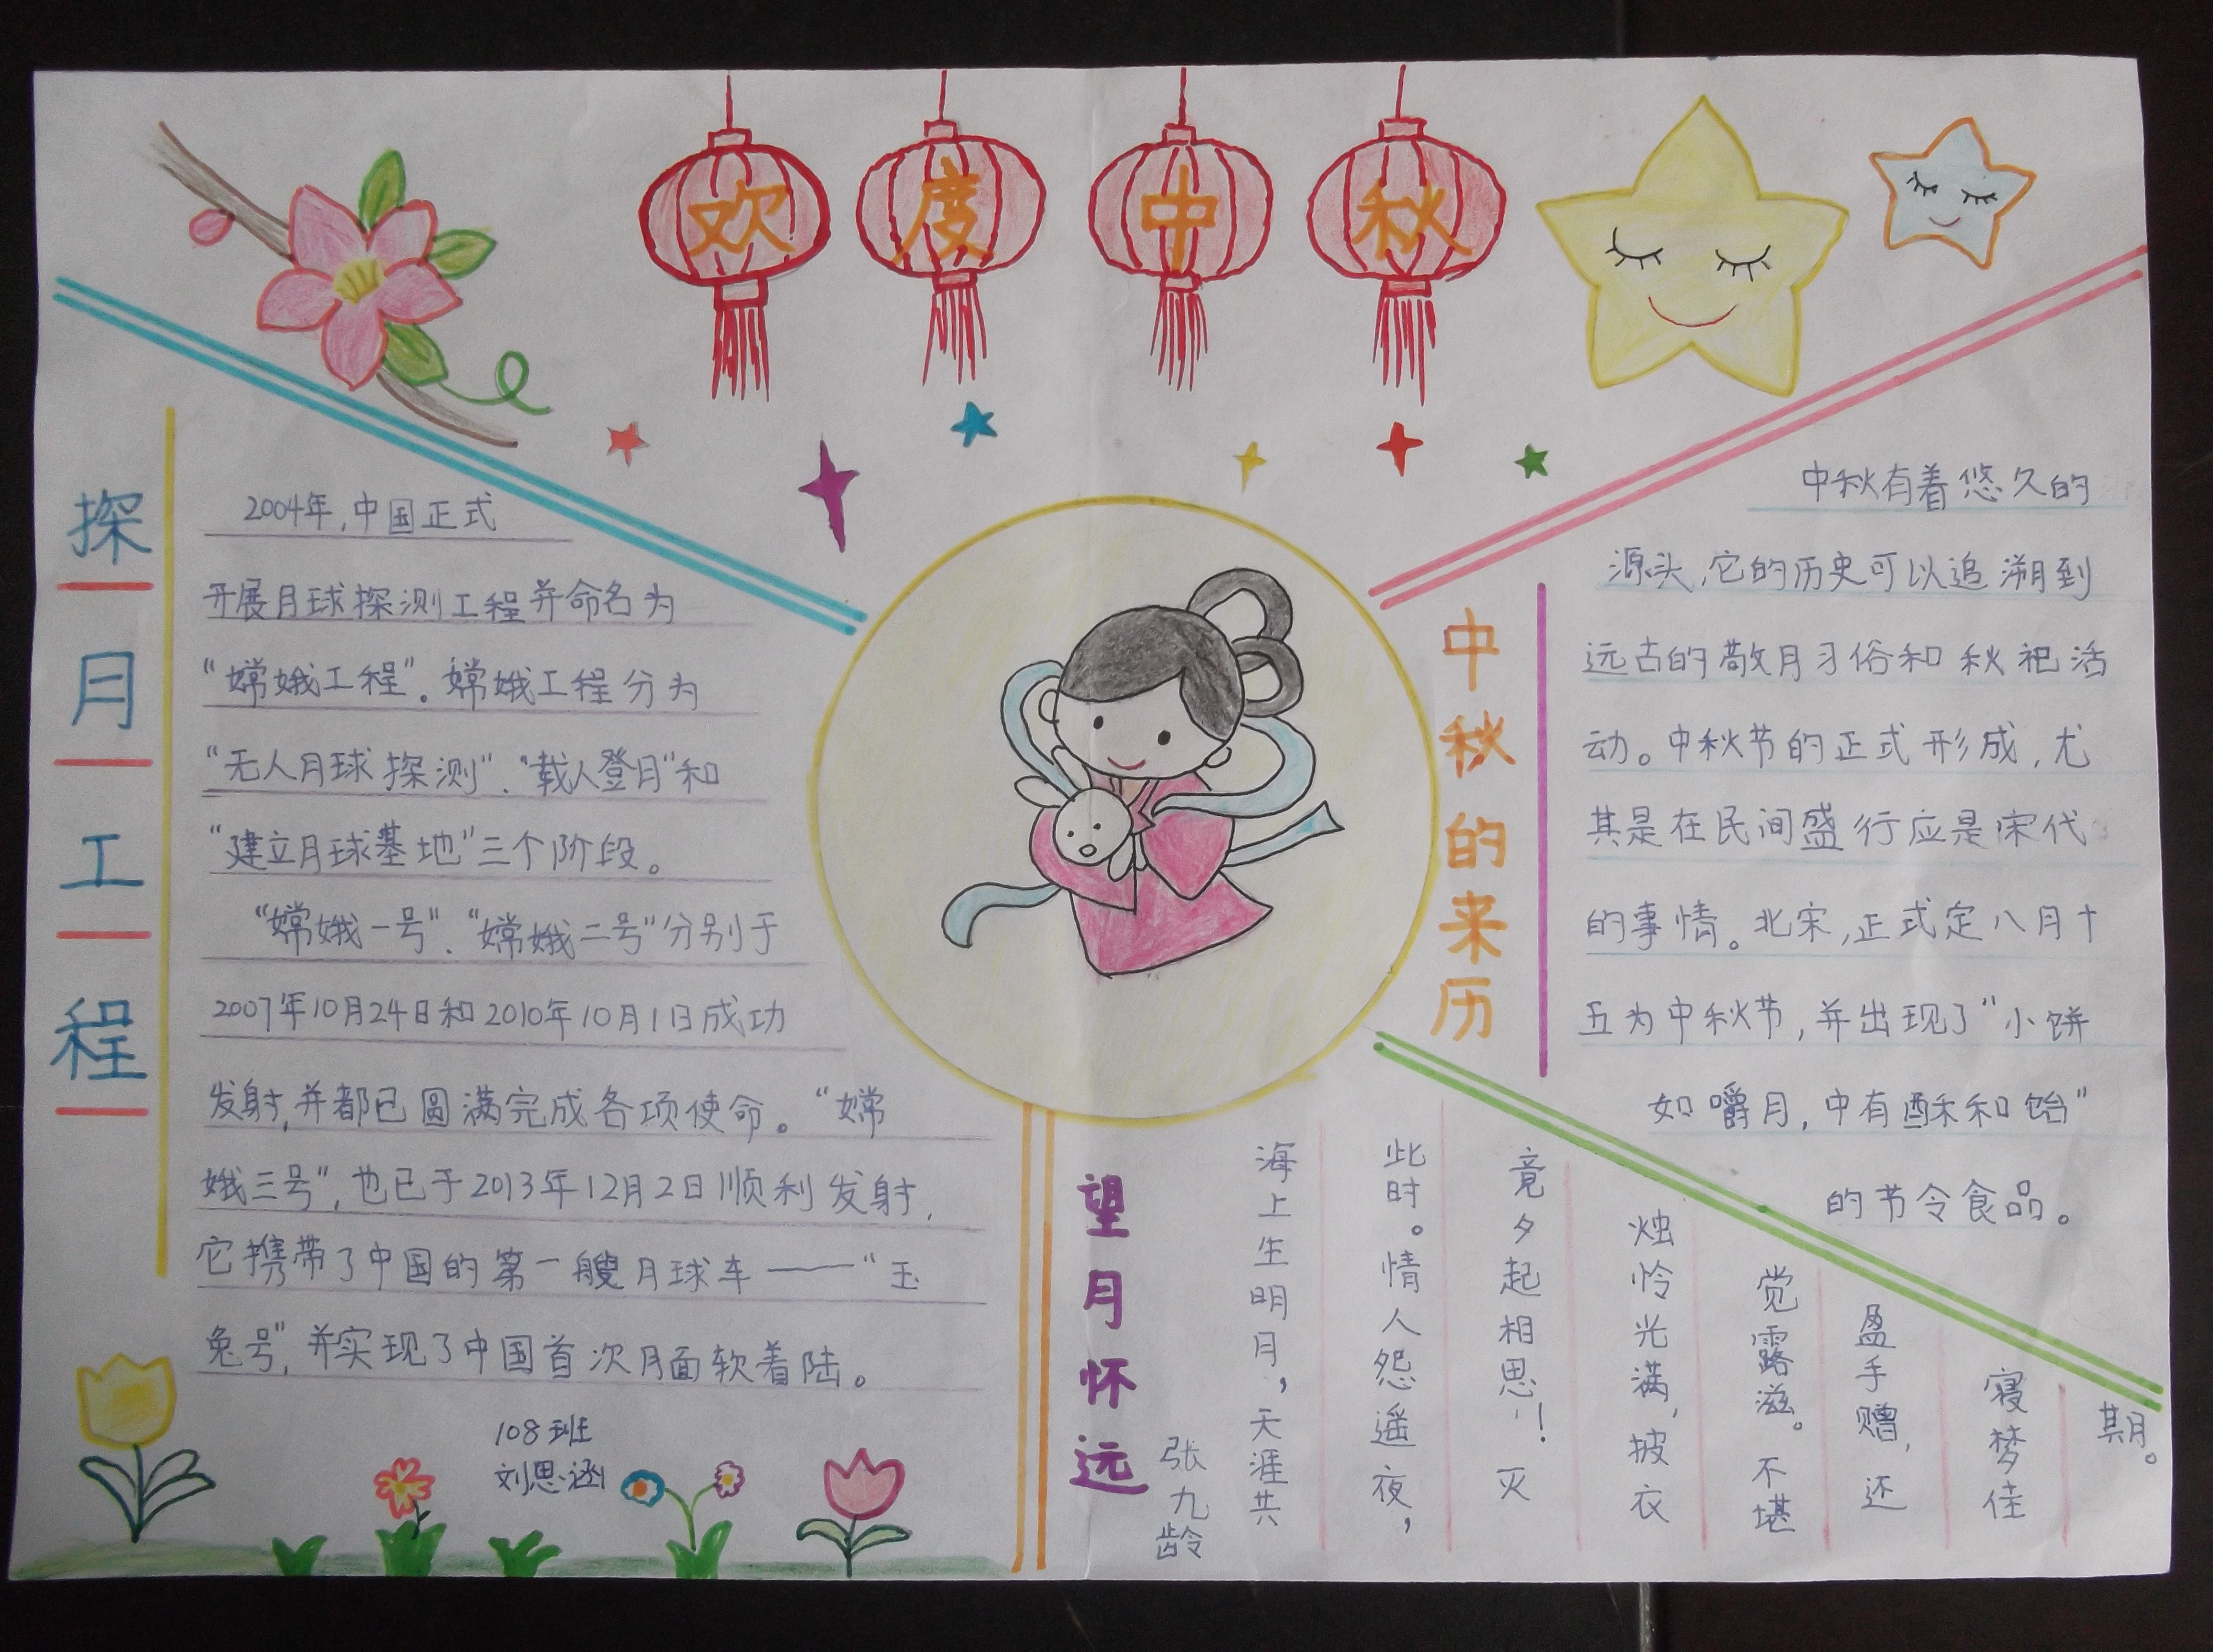 欢度中秋
探月工程
2004年,中国正式
开展月球探测工程并命名为
“嫦娥工程”。嫦娥工程分为
“无人月球探测”、“载人登月”和
“建立月球基地”三个阶段。
“嫦娥一号”、“嫦娥二号”分别于
2007年10月24日和2010年10月1日成功
发射,并都已圆满完成各项使命。“嫦
娥三号”,也已于2013年12月2日顺利发射,
它携带了中国的第一艘月球车——“玉
兔号”,并实现了中国首次月面软着陆。
108班
刘思涵
中秋的来历
中秋有着悠久的
源头,它的历史可以追溯到
远古的敬月习俗和秋祀活
动。中秋节的正式形成,尤
其是在民间盛行应是宋代
的事情。北宋,正式定八月十
五为中秋节,并出现了“小饼
如嚼月,中有酥和饴”
的节令食品。
望月怀远
张九龄
海上生明月,天涯共
此时。情人怨遥夜,
竟夕起相思!灭
烛怜光满,披衣
觉露滋。不堪
盈手赠,还
寝梦佳
期。